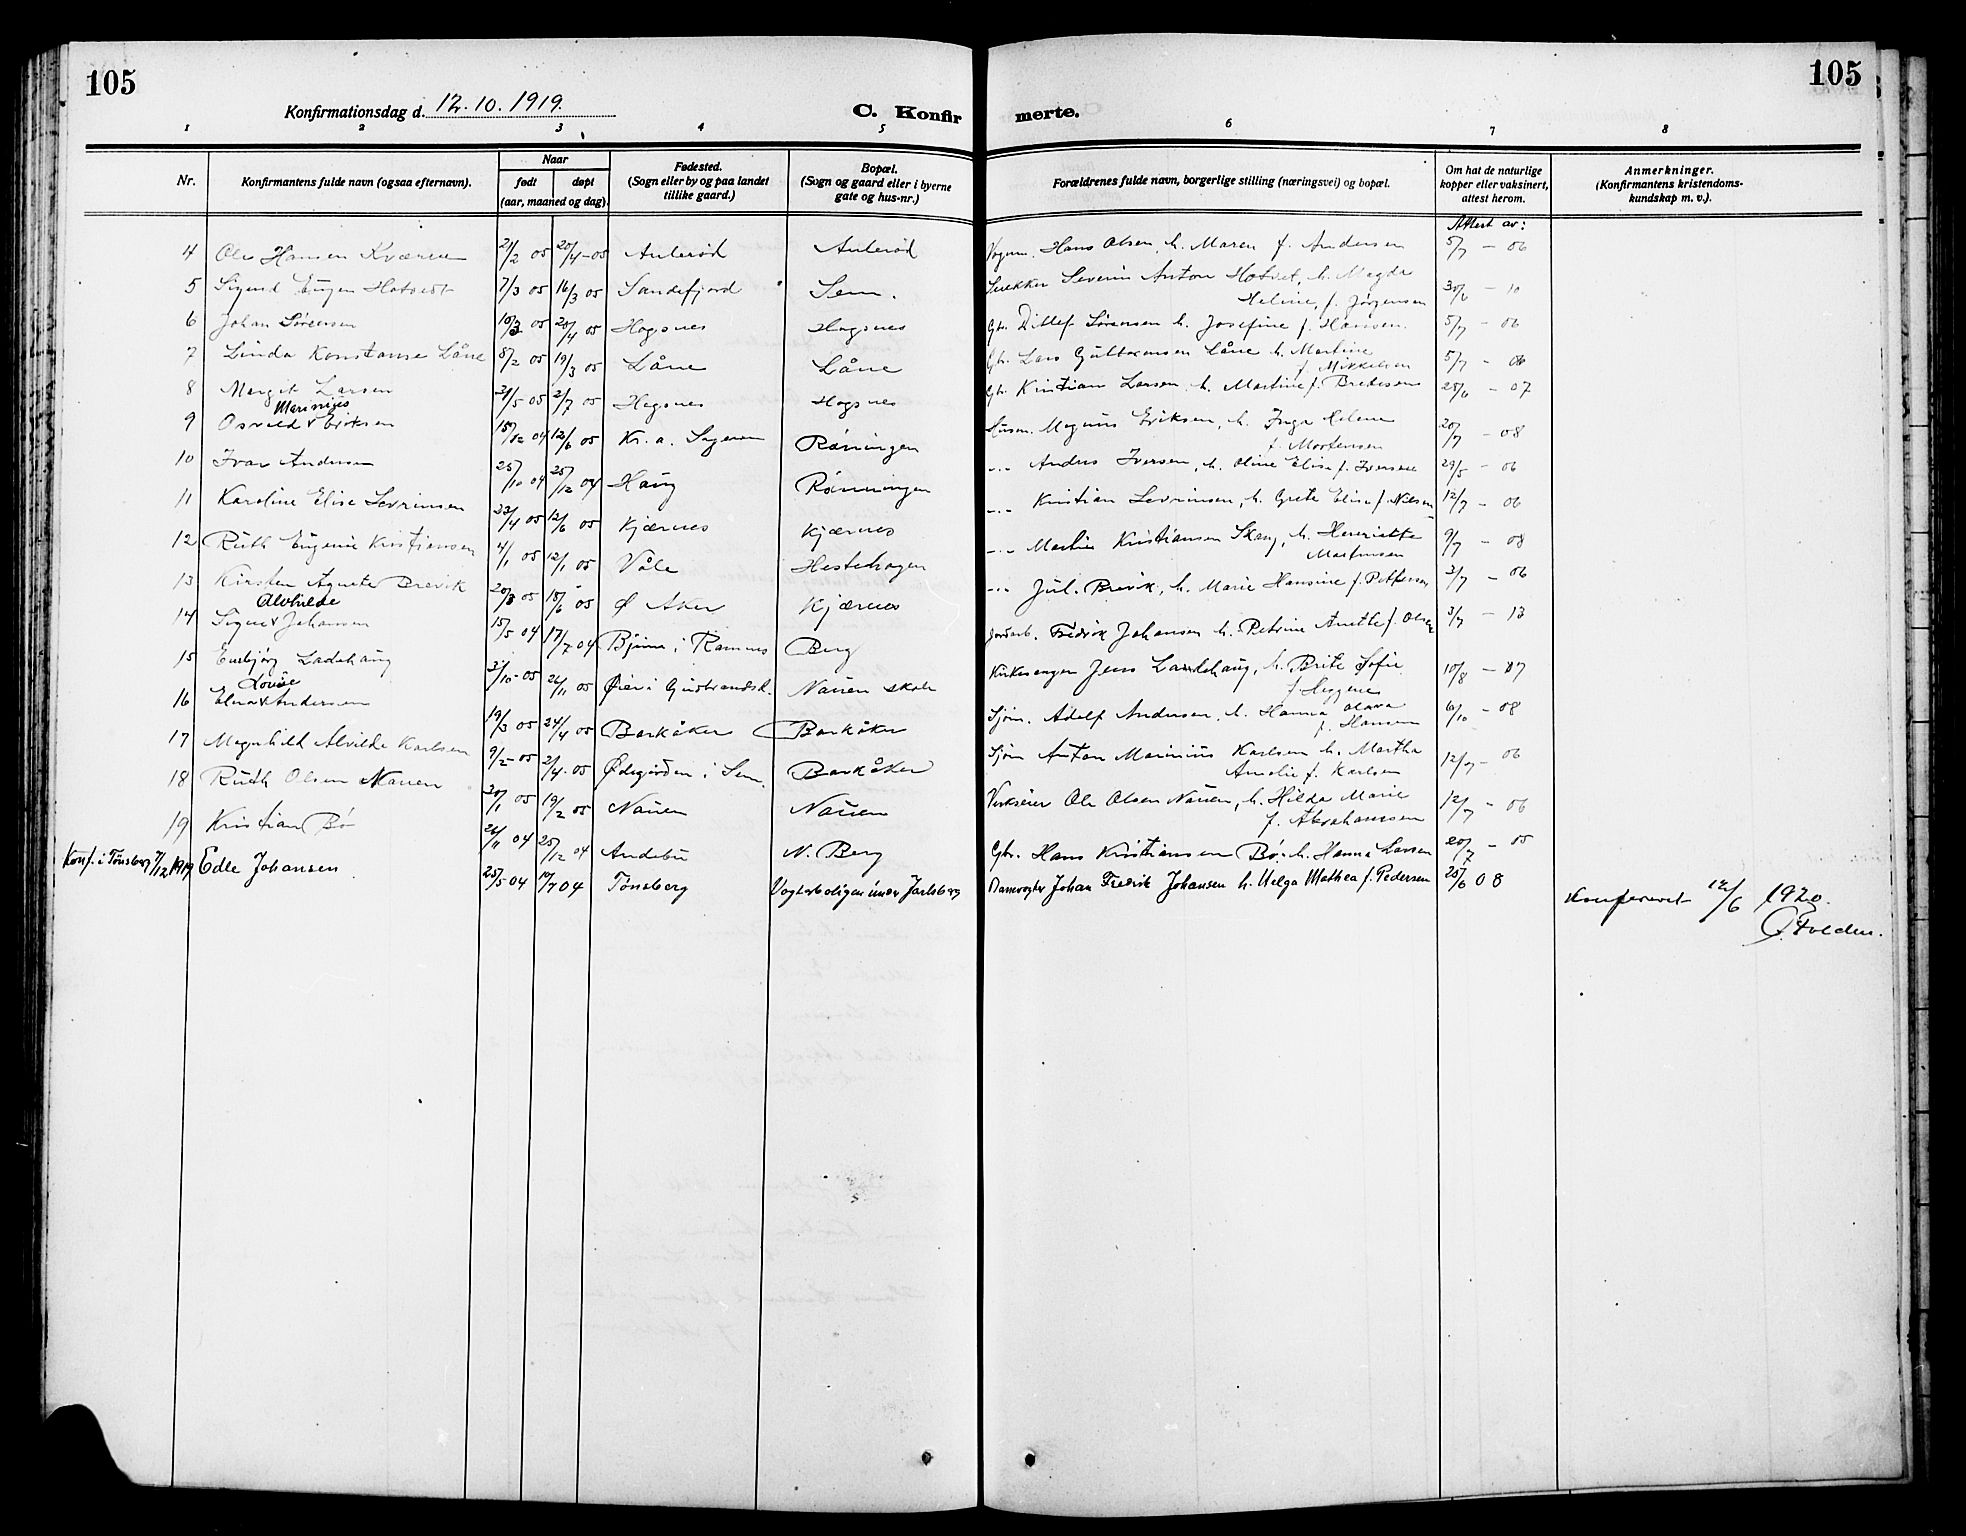 105
105
Konfirmationsdag d. 12.10.1919.
C. Konfir merte.
1 2 3 4 5 6 7 8
Nr. Konfirmantens fulde navn (ogsaa efternavn). Naar født døpt (aar, maaned og dag). Fødested. (Sogn eller by og paa landet tillike gaard.) Bopæl. (Sogn og gaard eller i byerne gate og hus-nr.) Forældrenes fulde navn, borgerlige stilling (næringsvei) og bopæl. Om hat de naturlige kopper eller vaksinert, attest herom. Anmerkninger. (Konfirmantens kristendoms-kundskap m. v.).
Attest av:
4 Ole Hansen Kværne 21/2 05 20/4-05 Aulerød Aulerød Hans Olsen h. Maren f. Andersen 5/7 - 06
5 Sigurd Eugen Hotvedt 7/3 05 16/3 05 Sandefjord Sem. Snekker Severin Anton Hotvet, h. Magda
Heline, f. Jørgensen 30/6 - 10
6 Johan Sørensen 05 20/4 05 Hogsnes Hogsnes Gbr. Ditlef Sørensen h. Josefine f. Hansen. 5/7 - 06
7 Linda Konstanse Låne 8/2 05 19/3 05 Låne Låne Gbr. Lars Låne h. Martine
f. Mikkelsen 5/7 - 06
8 Margit Larsen 31/5 05 2/7 05 Hogsnes Hogsnes Gbr. Kristian Larsen h. Martine f. Bredesen 25/6 - 07
Marinius
9 Osvald v Eriksen 04 12/6 05 Kr. a. Røningen Husm. Magnus Eriksen, h. Inga Helene
f. Mortensen 20/7 - 08
10 Ivar Andersen 25/10 04 25/12 04 Haug Rønningen -"- Anders Iversen, h. Oline Elise f. Iversen 29/5 - 06
11 Karoline Elise Sevrinsen 23/4 05 12/6 05 Kjærnes Kjærnes -"- Kristian Sevrinsen, h. Grete Elise f. Nilsen 12/7 - 06
12 Ruth Eugenie Kristiansen 4/1 05 12/1 05 Våle Hestehagen -"- Martin Kristiansen Skaug, h. Henriette
Martinsen 9/7 - 08
13 Kirsten Agnete Brevik 20/3 05 18/6 05 Ø Aker Kjærnes -"- Jul. Brevik, h. Marie Hansine f. Pettersen 3/7 - 06
Alvhilde
14 Signe v Johansen 15/5 04 17/7 04 Bjune i Ramnes Berg Jordarb. Fredrik Johansen h. Petrine Anette f. Olsen 3/7 - 13
15 Ladehaug 3/10-05 26/11 05 Øier i Gudbrandsd. Nauen skole Kirkesanger Jens Ladehaug, h. Brite Sofie
f. Heggenes 10/8 - 07
Lovise
16 Elna v Andersen 19/3 05 24/4 05 Barkåker Barkåker Sjøm. Adolf Andersen, h. Hanna Olava
f. Hansen 6/10 - 08
17 Magnhild Alvilde Karlsen 9/2-05 2/4-05 Ødegården i Sem Barkåker Sjøm Anton Marinius Karlsen h. Martha
Amalie f. Karlsen 12/7 - 06
18 Ruth Olsen Nauen 20/1 05 19/2 05 Nauen Nauen Verkseier Ole Olsen Nauen, h. Hilda Marie
f. Abrahamsen 12/7 - 06
19 Kristian Bø 26/11 04 25/12 04 Andebu N. Berg Gbr. Hans Kristiansen Bø h. Hanna Larsen 20/7 - 05
Konf. i Tønsberg 7/12 1919 Edle Johansen 25/5 04 04 Tønsberg Vogterboligen under Jarlsberg Banevogter Johan Fredrik Johansen h. Helga Mathea f. Pedersen 25/6 08
Konfereret 12/6 1920.